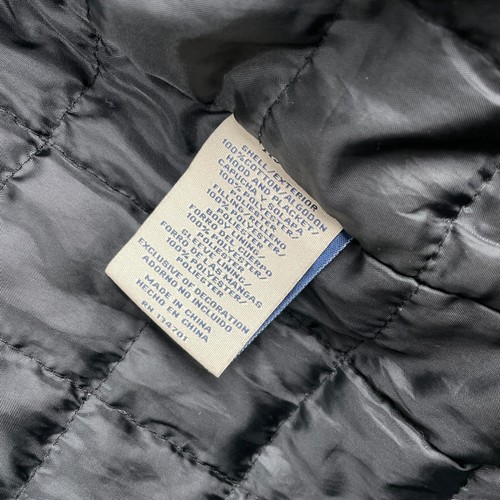 SHELL/EXTERIOR
100%COTTON/ALGODON
HOOD AND PLACKET/
CAPUCHA Y SOLAPA
FILLING/RELLENO
100% POLYESTER/
POLIESTER
BODY LINING/
FORRO DEL CUERPO
100% POLYESTER/
SLEEVE LINING/
FORRO DE LAS MANGAS
100% POLYESTER/
POLIESTER
EXCLUSIVE OF DECORATION
ADORNO NO INCLUIDO
MADE IN CHINA
HECHO EN CHINA
RN 134701